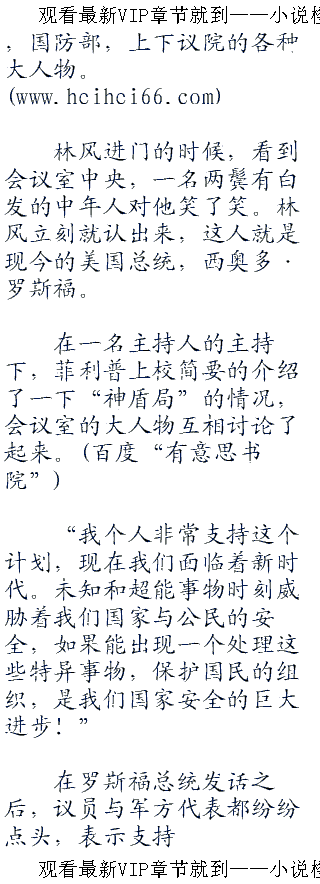 观看最新VIP章节就到——小说
，国防部，上下议院的各种
大人物。
(www.hcihci66.com)
林风进门的时候，看到
会议室中央，一名两鬓有白
发的中年人对他笑了笑。林
风立刻就认出来，这人就是
现今的美国总统，西奥多·
罗斯福。
在一名主持人的主持
下，菲利普上校简要的介绍
了一下“神盾局”的情况，
会议室的大人物互相讨论了
起来。(百度“有意思书
院”)
“我个人非常支持这个
计划，现在我们面临着新时
代。未知和超能事物时刻威
胁着我们国家与公民的安
全，如果能出现一个处理这
些特异事物，保护国民的组
织，是我们国家安全的巨大
进步！”
在罗斯福总统发话之
后，议员与军方代表都纷纷
点头，表示支持
观看最新VIP章节就到——小说